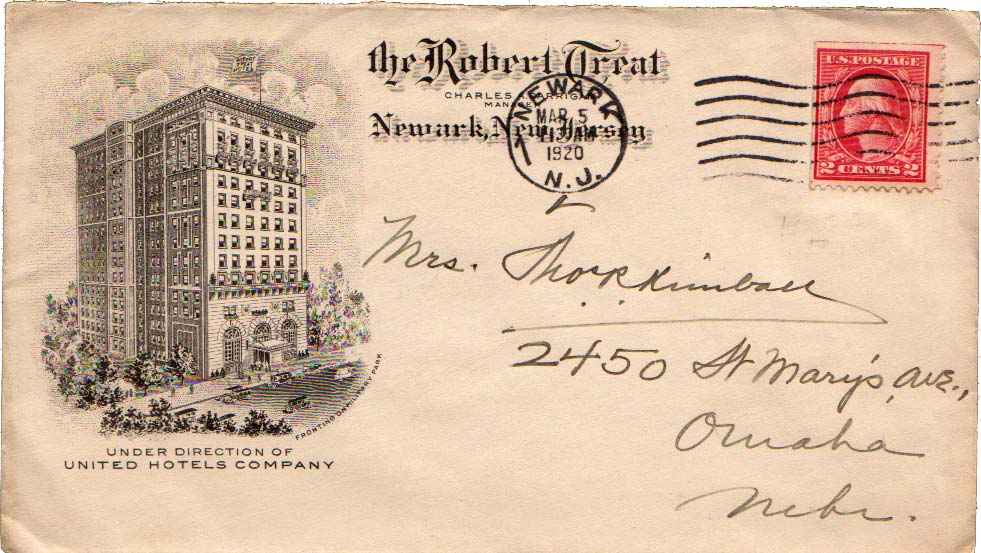 the Robert Treat
CHARLES A. CARRIGAN
MANAGER
Newark, New Jersey
NEWARK
MAR 5
AM
1920
N.J.
U.S. POSTAGE
2 CENTS 2
Mrs. Thos R Kimball
2450 St Mary's Ave.,
Omaha
Nebr.
FRONTING ONE MILITARY PARK
UNDER DIRECTION OF
UNITED HOTELS COMPANY